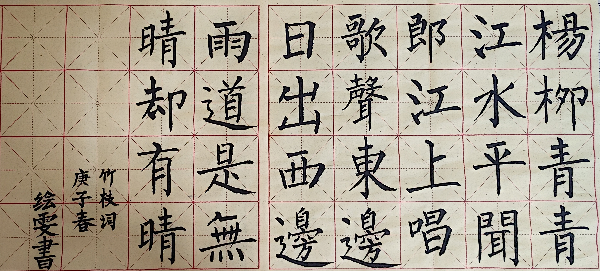 楊柳青青
江水平聞
郎江上唱
歌聲東邊
日出西邊
雨道是無
晴却有晴
竹枝词
庚子春
绘雯書